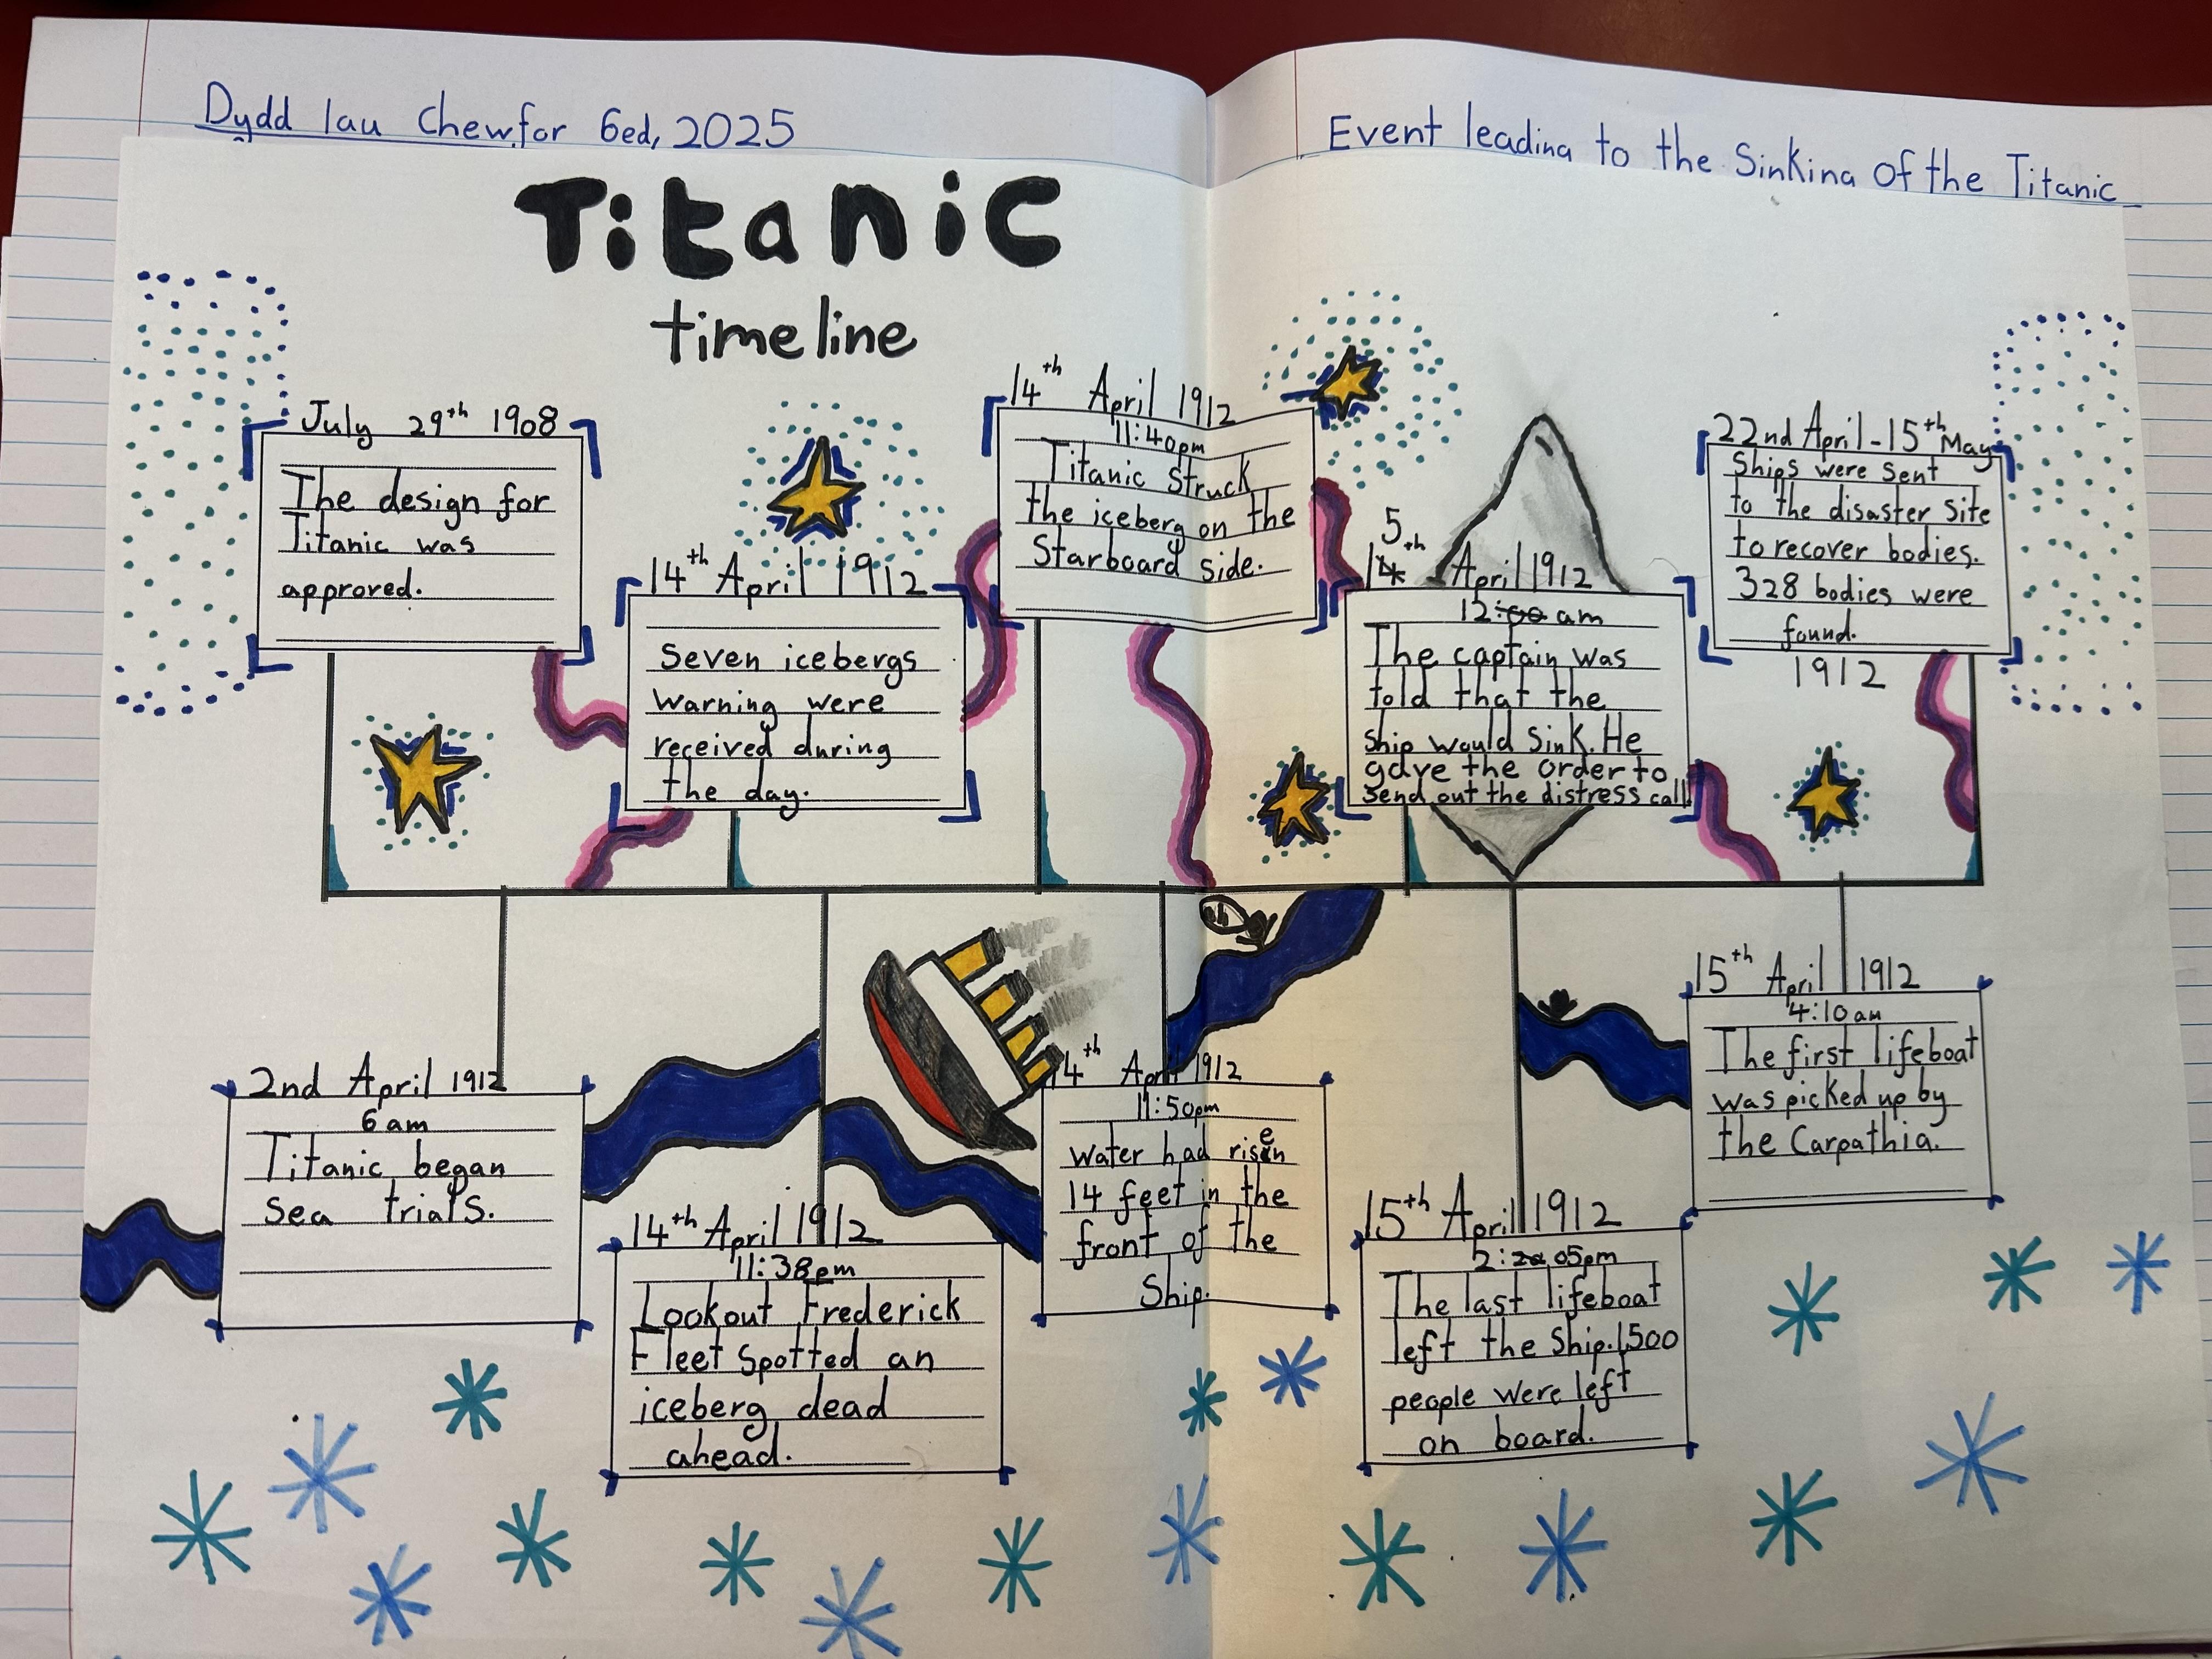 Dydd Iau Chewfor 6ed, 2025
Event leading to the Sinking of the Titanic
Titanic
timeline
July 29th 1908
The design for
Titanic was
approved.
2nd April 1912
6am
Titanic began
sea trials.
14th April 1912
Seven icebergs
warning were
received during
the day.
14th April 1912
11:38pm
Lookout Frederick
Fleet spotted an
iceberg dead
ahead.
14th April 1912
11:40pm
Titanic Struck
the iceberg on the
Starboard side.
14th April 1912
11:50pm
water had risen
14 feet in the
front of the
Ship.
15th April 1912
12:00 am
The captain was
told that the
ship would sink. He
gave the order to
send out the distress call
15th April 1912
2:05pm
The last lifeboat
left the Ship. 1500
people were left
on board.
15th April 1912
4:10am
The first lifeboat
was picked up by
the Carpathia.
22nd April - 15th May
Ships were sent
to the disaster site
to recover bodies.
328 bodies were
found.
1912